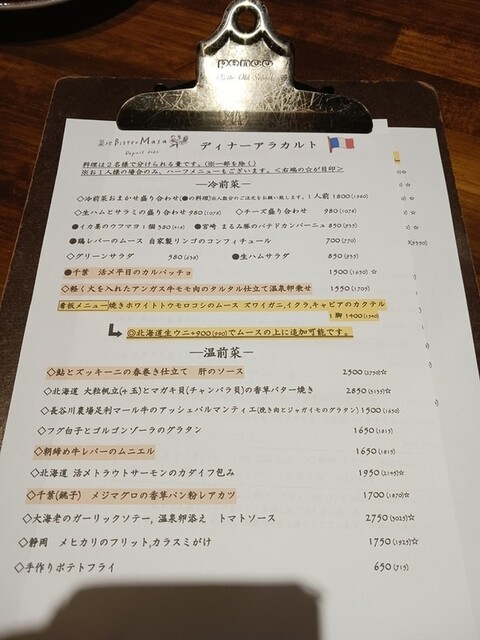 penco
菜 Bistro Masa
Depuis 2020
ディナーアラカルト
料理は2名様で分けられる量です。(※一部を除く)
※お1人様の場合のみ、ハーフメニューもございます。<右端の☆が目印>
―冷前菜―
◇冷前菜おまかせ盛り合わせ(●の料理)※人数分のご注文をお願い致します。1人前 1800(1980)
◇生ハムとサラミの盛り合わせ 980(1078) ◇チーズ盛り合わせ 980(1078)
●イカ墨のウフマヨ1個 380(418) ●宮崎 まるみ豚のパテドカンパーニュ 850(935)
●鶏レバーのムース 自家製リンゴのコンフィチュール 700(770)
◇グリーンサラダ 580(638) ●生ハムサラダ 850(935)
●千葉 活〆平目のカルパッチョ 1500(1650)☆
◇軽く火を入れたアンガス牛モモ肉のタルタル仕立て温泉卵乗せ 1550(1705)
看板メニュー 焼きホワイトトウモロコシのムース ズワイガニ,イクラ,キャビアのカクテル
1脚 1400(1540)
◎北海道生ウニ+900(990)でムースの上に追加可能です。
―温前菜―
◇鮎とズッキーニの春巻き仕立て 肝のソース 2500(2750)☆
◇北海道 大粒帆立(+玉)とマガキ貝(チャンバラ貝)の香草バター焼き 2850(3135)☆
◇長谷川農場足利マール牛のアッシェパルマンティエ(挽き肉とジャガイモのグラタン) 1500(1650)
◇フグ白子とゴルゴンゾーラのグラタン 1650(1815)
◇朝締め牛レバーのムニエル 1650(1815)
◇北海道 活メトラウトサーモンのカダイフ包み 1950(2145)☆
◇千葉(銚子) メジマグロの香草パン粉レアカツ 1700(1870)☆
◇大海老のガーリックソテー, 温泉卵添え トマトソース 2750(3025)☆
◇静岡 メヒカリのフリット,カラスミがけ 1750(1925)☆
◇手作りポテトフライ 650(715)